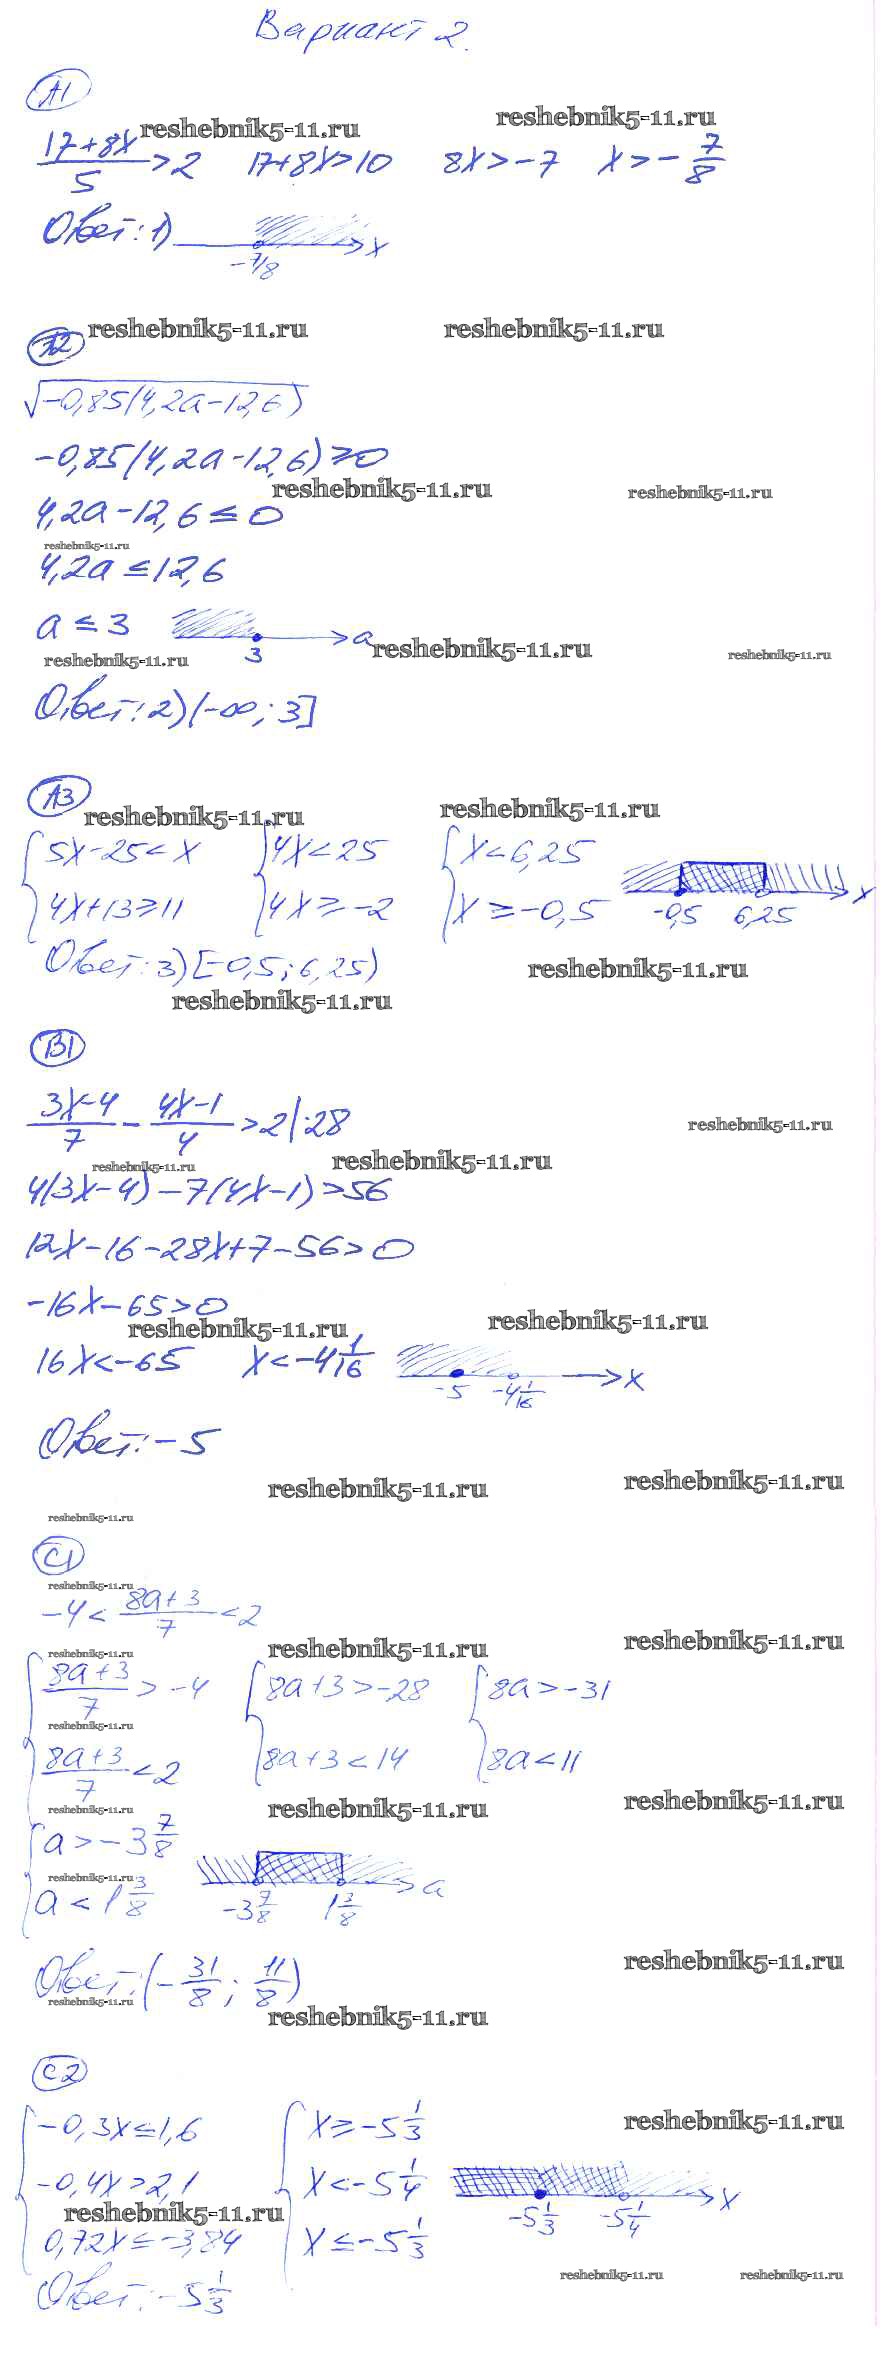 Вариант 2.
А1
reshebnik5-11.ru reshebnik5-11.ru
(17+8x)/5 > 2 17+8x>10 8x>-7 x>-7/8
Ответ: 1) -7/8 x
А2 reshebnik5-11.ru reshebnik5-11.ru
√(-0,85(4,2a-12,6))
-0,85(4,2a-12,6)≥0
reshebnik5-11.ru reshebnik5-11.ru
4,2a-12,6≤0
reshebnik5-11.ru
4,2a≤12,6
a≤3 3 a reshebnik5-11.ru
reshebnik5-11.ru reshebnik5-11.ru
Ответ: 2) (-∞; 3]
А3 reshebnik5-11.ru reshebnik5-11.ru
{5x-25<x {4x<25 {x<6,25
{4x+13≥11 {4x≥-2 {x≥-0,5 -0,5 6,25 x
Ответ: 3) [-0,5; 6,25)
reshebnik5-11.ru
reshebnik5-11.ru
В1
(3x-4)/7 - (4x-1)/4 > 2 |·28 reshebnik5-11.ru
reshebnik5-11.ru reshebnik5-11.ru
4(3x-4)-7(4x-1)>56
12x-16-28x+7-56>0
-16x-65>0
reshebnik5-11.ru reshebnik5-11.ru
16x<-65 x<-4 1/16 -5 -4 1/16 x
Ответ: -5
reshebnik5-11.ru reshebnik5-11.ru
reshebnik5-11.ru
С1
reshebnik5-11.ru
-4 < (8a+3)/7 < 2
reshebnik5-11.ru reshebnik5-11.ru reshebnik5-11.ru
{(8a+3)/7 > -4 {8a+3>-28 {8a>-31
reshebnik5-11.ru
{(8a+3)/7 < 2 {8a+3<14 {8a<11
reshebnik5-11.ru reshebnik5-11.ru reshebnik5-11.ru
{a>-3 7/8
reshebnik5-11.ru
{a<1 3/8 -3 7/8 1 3/8 a
Ответ: (-31/8; 11/8)
reshebnik5-11.ru
reshebnik5-11.ru reshebnik5-11.ru
С2
{-0,3x≤1,6 {x≥-5 1/3 reshebnik5-11.ru
{-0,4x>2,1 {x<-5 1/4 -5 1/3 -5 1/4 x
reshebnik5-11.ru
{0,72x≤-3,84 {x≤-5 1/3
reshebnik5-11.ru reshebnik5-11.ru
Ответ: -5 1/3